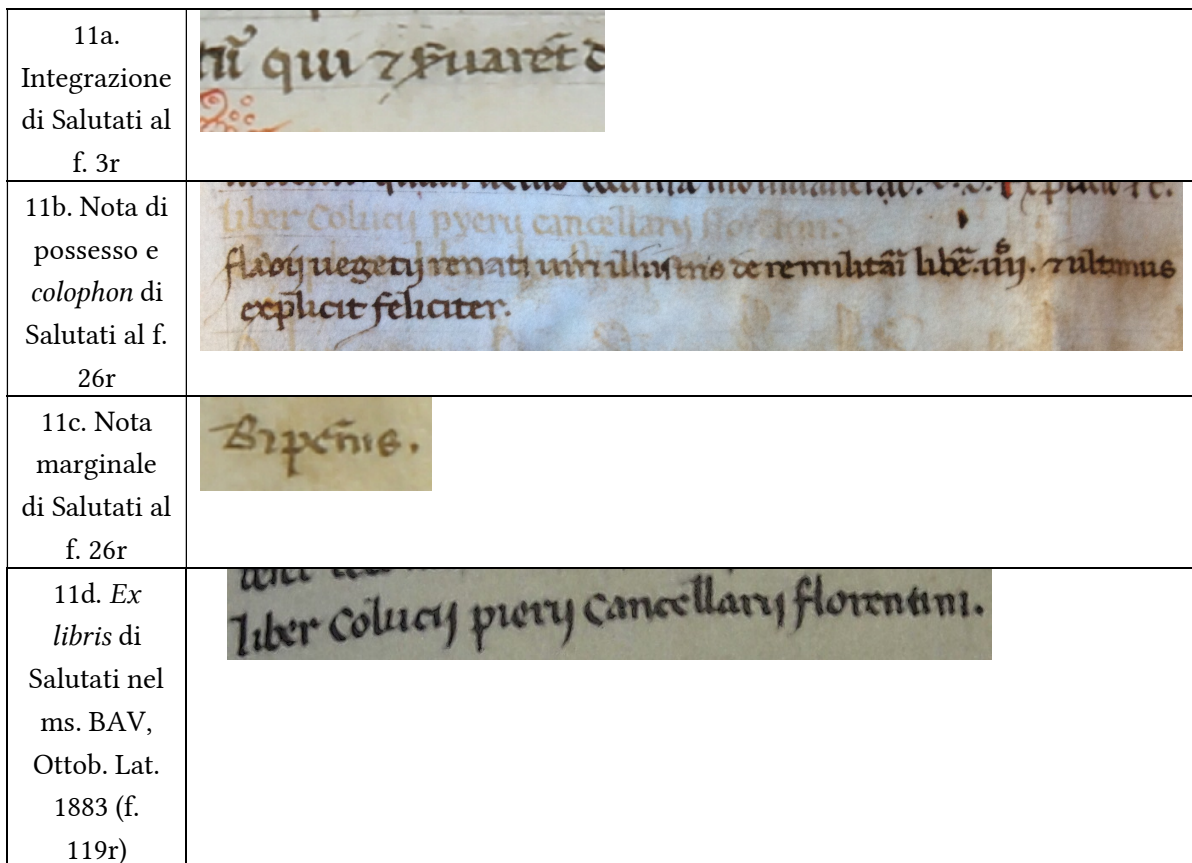 11a.
Integrazione
di Salutati al
f. 3r
qui ⁊
11b. Nota di
possesso e
colophon di
Salutati al f.
26r
liber Colucij pyerij cancellarij
flavij uegetij renatj uiri illustris de re militāi libe᷒ .iiijͦ. ⁊ ultimus
explicit feliciter.
11c. Nota
marginale
di Salutati al
f. 26r
11d. Ex
libris di
Salutati nel
ms. BAV,
Ottob. Lat.
1883 (f.
119r)
liber Colucij pierij Cancellarij florentini.